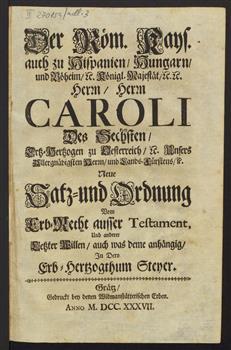 II 270153/adl.3
Der Röm. Kays.
auch zu Hispanien/ Hungarn/
und Böheim/ &c. Königl. Majestät/ &c. &c.
Herrn/ Herrn
CAROLI
Des Sechsten/
Ertz-Hertzogen zu Oesterreich/ &c. Unsers
Allergnädigsten Herrn/ und Lands-Fürstens/ &c.
Neue
Satz- und Ordnung
Vom
Erb-Recht ausser Testament,
Und anderer
Letzter Willen/ auch was deme anhängig/
In Dero
Erb-Hertzogthum Steyer.
Grätz/
Gedruckt bey denen Widmanstätterischen Erben.
ANNO M. DCC. XXXVII.